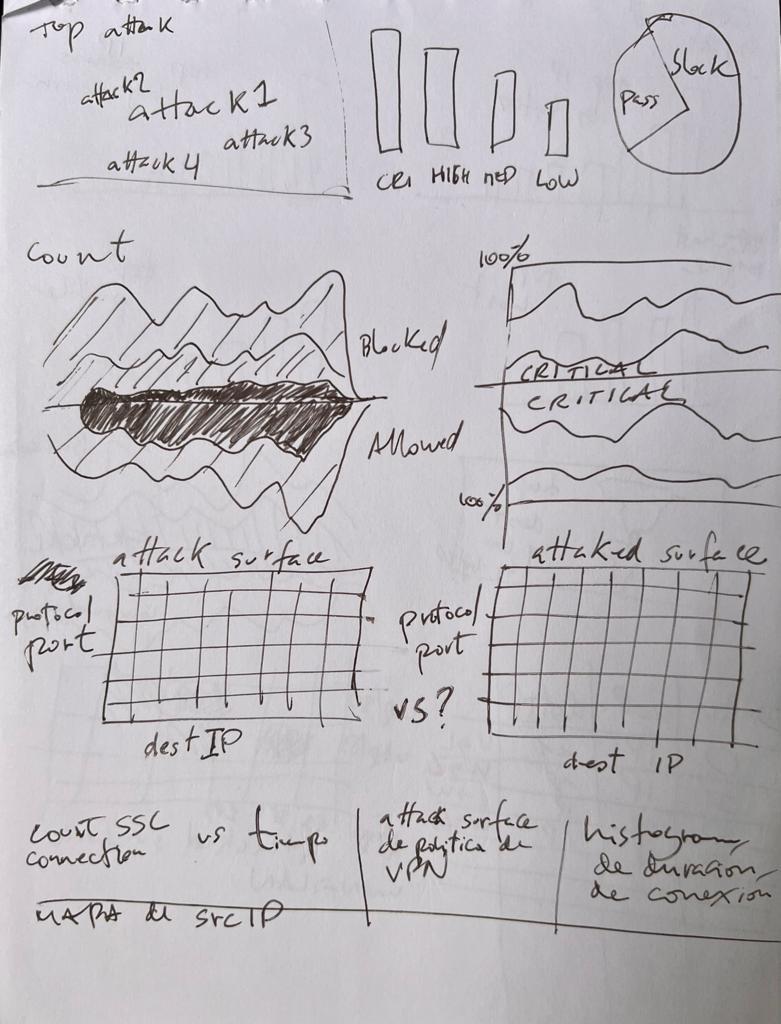 Top attack
attack2
attack1
attack3
attack4
CRI HIGH MED LOW
block
pass
count
Blocked
Allowed
100%
CRITICAL
CRITICAL
100%
attack surface
protocol
port
dest IP
attaked surface
protocol
port
vs?
dest IP
count SSL
connection
vs tiempo
MAPA de srcIP
attack surface
de politica de
VPN
histograma
de duracion
de conexion